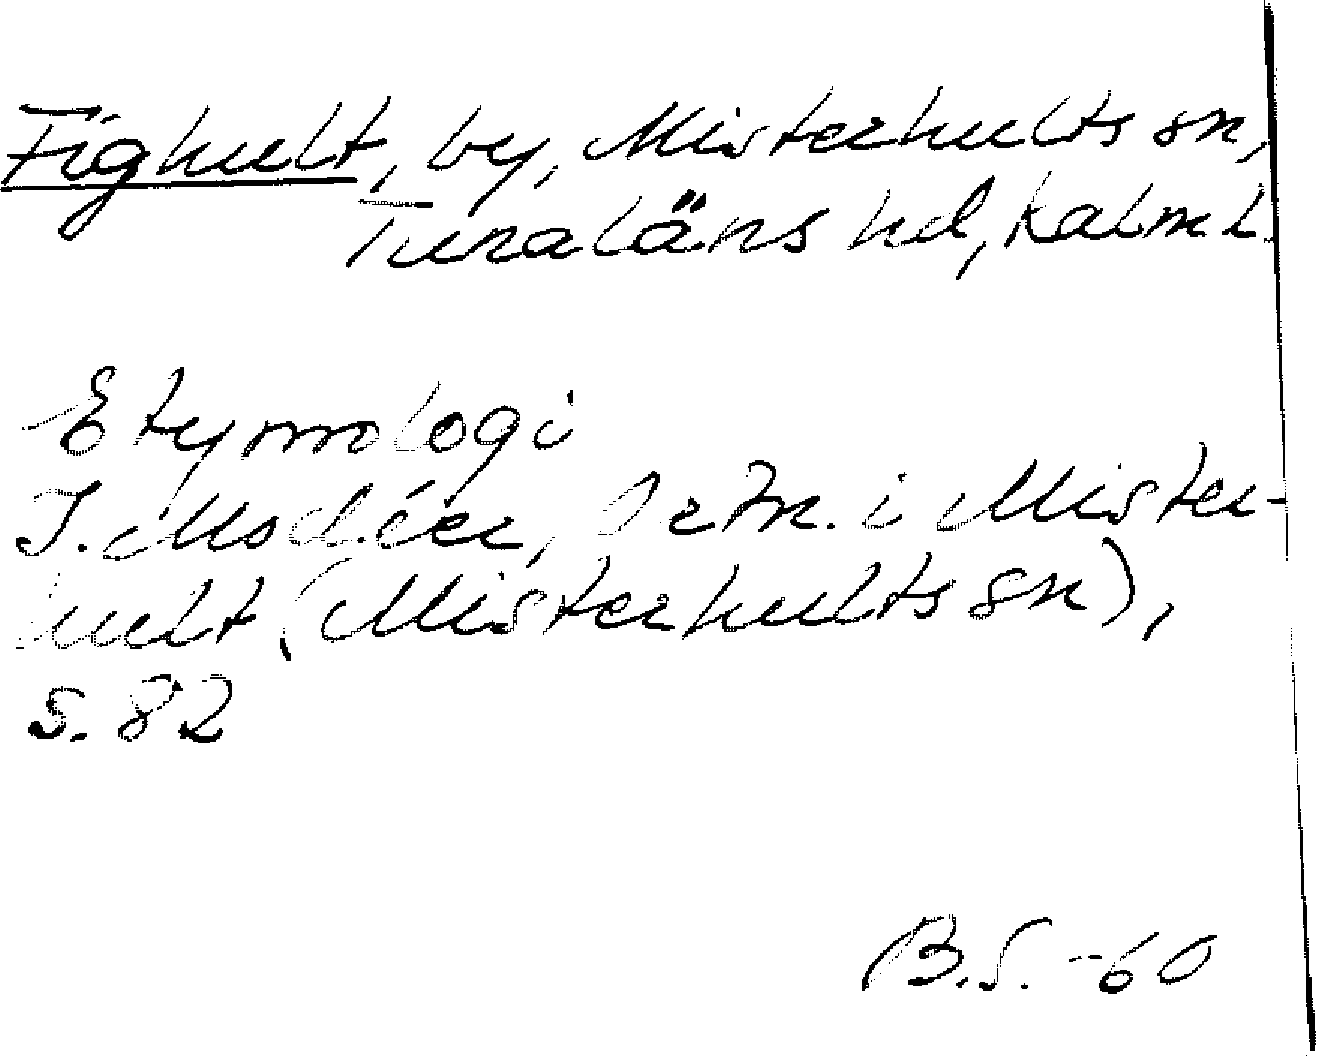 Fighult, by, Misterhults sn,
Tunaläns hd, Kalm l.
Etymologi
I. Modéer, Ortn. i Mister-
hult (Misterhults sn),
s. 82
B.S. -60